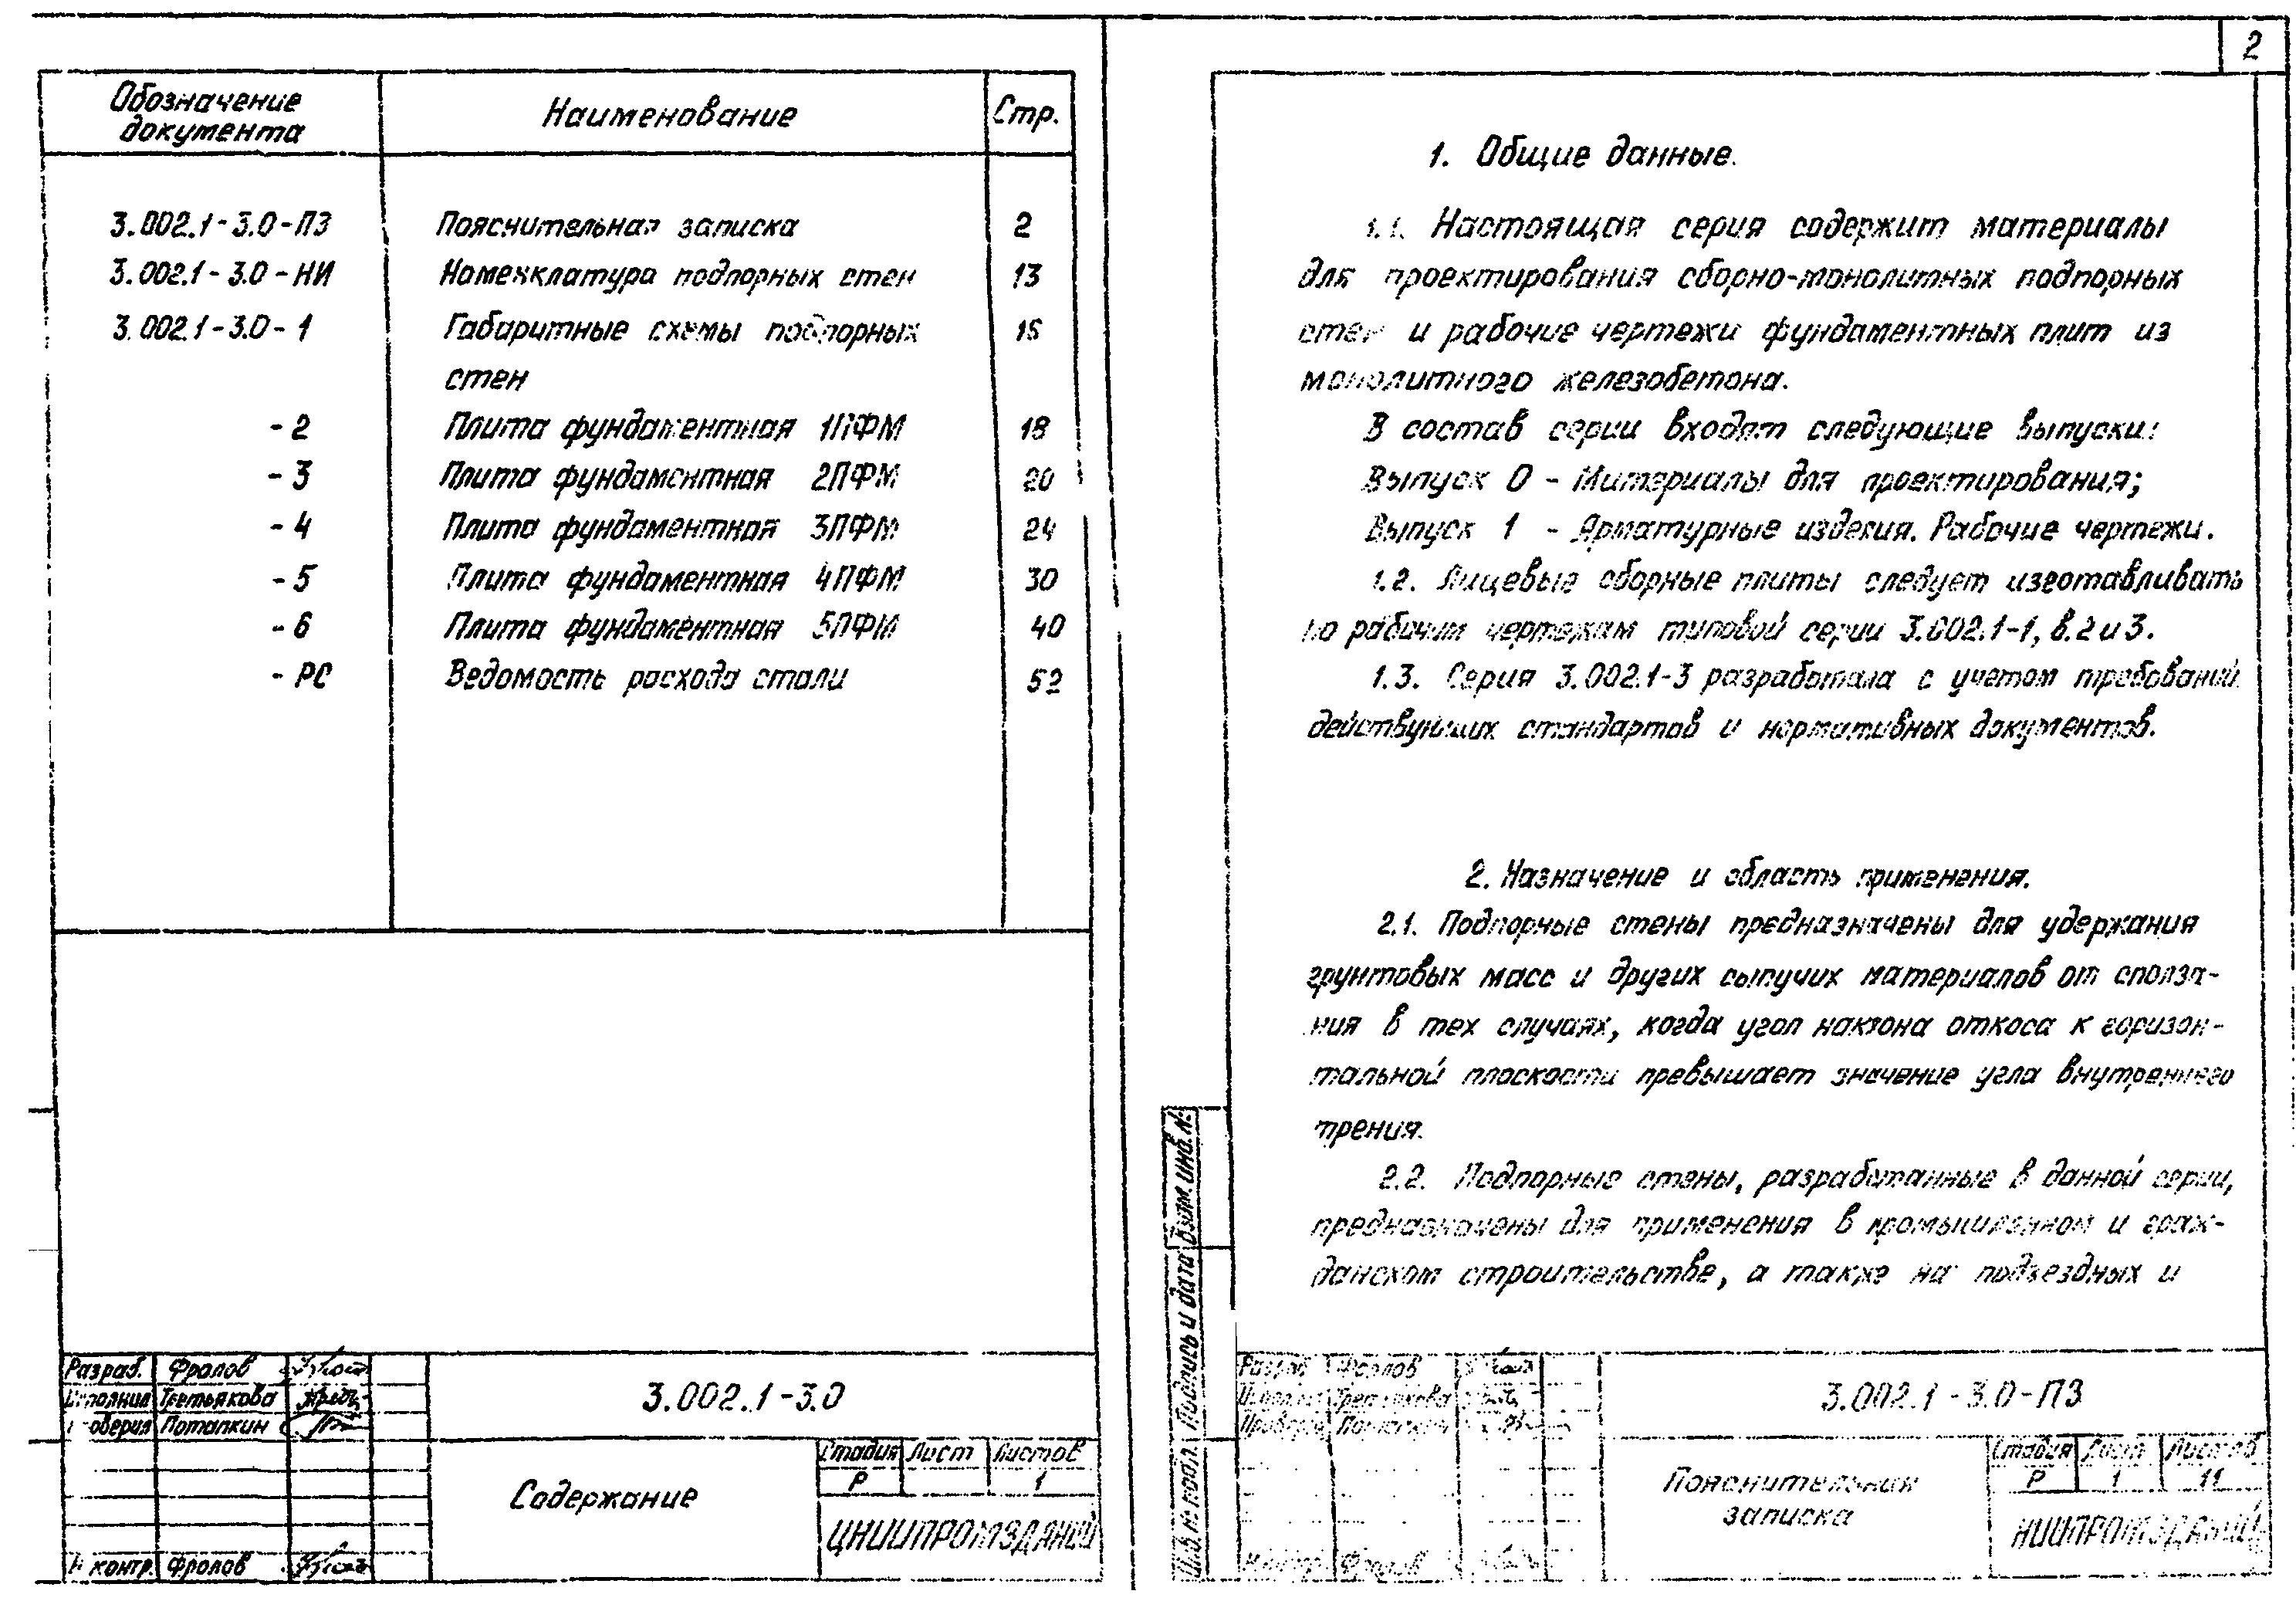 2
Обозначение документа
Наименование
Стр.
3.002.1-3.0-ПЗ Пояснительная записка 2
3.002.1-3.0-НИ Номенклатура подпорных стен 13
3.002.1-3.0-1 Габаритные схемы подпорных 15
стен
-2 Плита фундаментная 1ПФМ 18
-3 Плита фундаментная 2ПФМ 20
-4 Плита фундаментная 3ПФМ 24
-5 Плита фундаментная 4ПФМ 30
-6 Плита фундаментная 5ПФМ 40
-РС Ведомость расхода стали 52
Разраб. Фролов
Исполнил Третьякова
Проверил Потапкин
Н контр. Фролов
3.002.1-3.0
Содержание
Стадия Лист Листов
Р 1
ЦНИИПРОМЗДАНИЙ
1. Общие данные.
1.1. Настоящая серия содержит материалы
для проектирования сборно-монолитных подпорных
стен и рабочие чертежи фундаментных плит из
монолитного железобетона.
В состав серии входят следующие выпуски:
Выпуск 0 - Материалы для проектирования;
Выпуск 1 - Арматурные изделия. Рабочие чертежи.
1.2. Лицевые сборные плиты следует изготавливать
по рабочим чертежам типовой серии 3.002.1-1, в.2 и 3.
1.3. Серия 3.002.1-3 разработана с учетом требований
действующих стандартов и нормативных документов.
2. Назначение и область применения.
2.1. Подпорные стены предназначены для удержания
грунтовых масс и других сыпучих материалов от сполза-
ния в тех случаях, когда угол наклона откоса к горизон-
тальной плоскости превышает значение угла внутреннего
трения.
2.2. Подпорные стены, разработанные в данной серии,
предназначены для применения в промышленном и граж-
данском строительстве, а также на подъездных и
Взам. инв. №
Подпись и дата
Инв. № подл.
Разраб. Фролов
Исполнил Третьякова
Проверил Потапкин
Н контр. Фролов
3.002.1-3.0-ПЗ
Пояснительная
записка
Стадия Лист Листов
Р 1 11
ЦНИИПРОМЗДАНИЙ